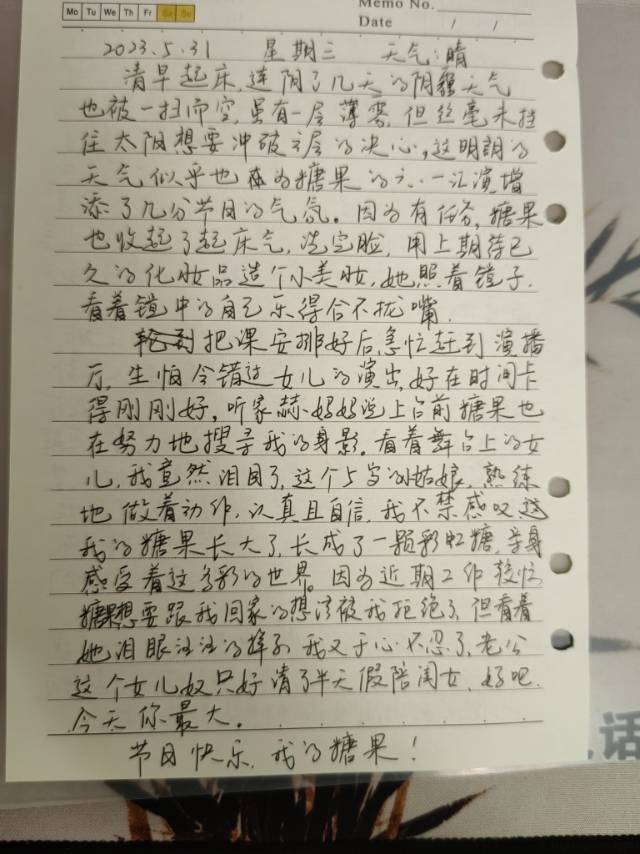 Memo No.
Mo Tu We Th Fr Sa Su
Date / /
2023.5.31 星期三 天气:晴
清早起床,连阴了几天的阴霾天气
也被一扫而空,虽有一层薄雾,但丝毫未挡
住太阳想要冲破云层的决心,这明朗的
天气似乎也在为糖果的六·一汇演增
添了几分节日的气氛。因为有任务,糖果
也收起了起床气,洗完脸,用上期待已
久的化妆品造个小美妆,她照着镜子,
看着镜中的自己乐得合不拢嘴.
把课安排好后,急忙赶到演播
厅,生怕会错过女儿的演出,好在时间卡
得刚刚好,听家赫妈妈说上台前糖果也
在努力地搜寻我的身影.看着舞台上的女
儿,我竟然泪目了,这个5岁的小姑娘,熟练
地做着动作,认真且自信,我不禁感叹
我的糖果长大了,长成了一颗彩虹糖,亲身
感受着这多彩的世界。因为近期工作较忙
糖果想要跟我回家的想法被我拒绝了,但看着
她泪眼汪汪的样子,我又于心不忍了,老公
这个女儿奴只好请了半天假陪闺女,好吧,
今天你最大。
节日快乐,我的糖果!
话